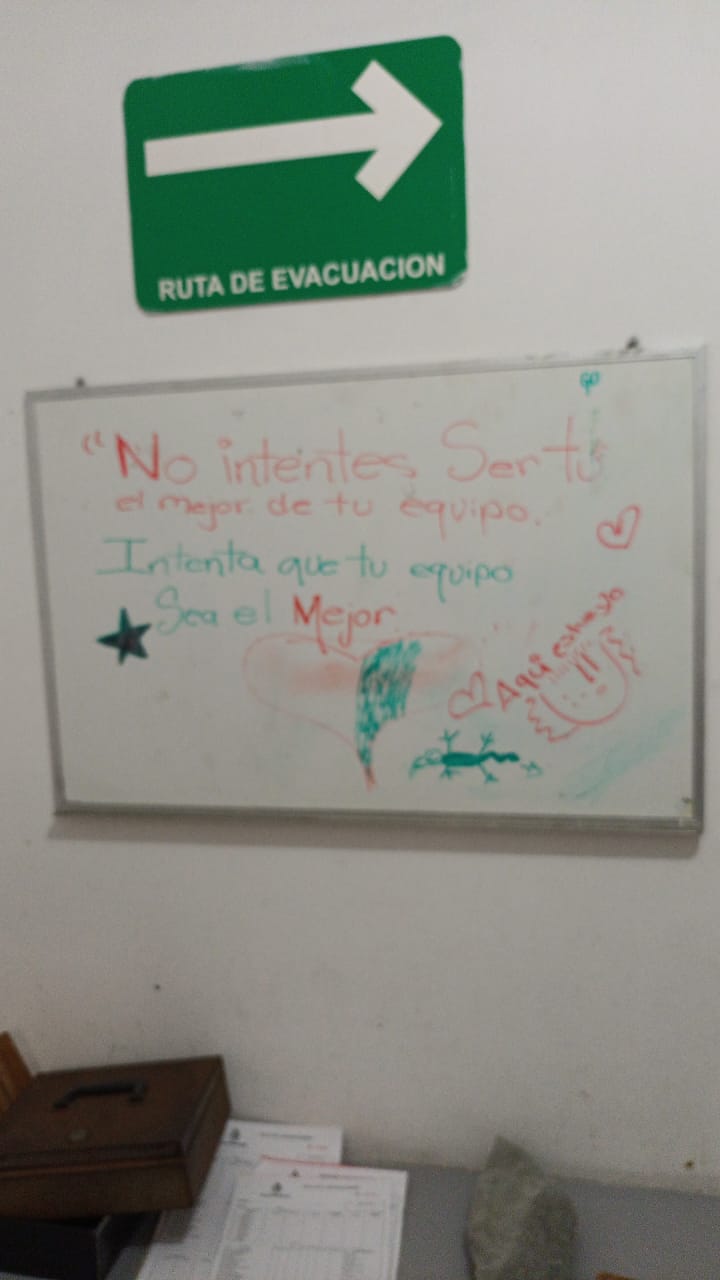 RUTA DE EVACUACION
GO
"No intentes Ser tu
el mejor de tu equipo.
Intenta que tu equipo
Sea el Mejor
Aqui estuve yo